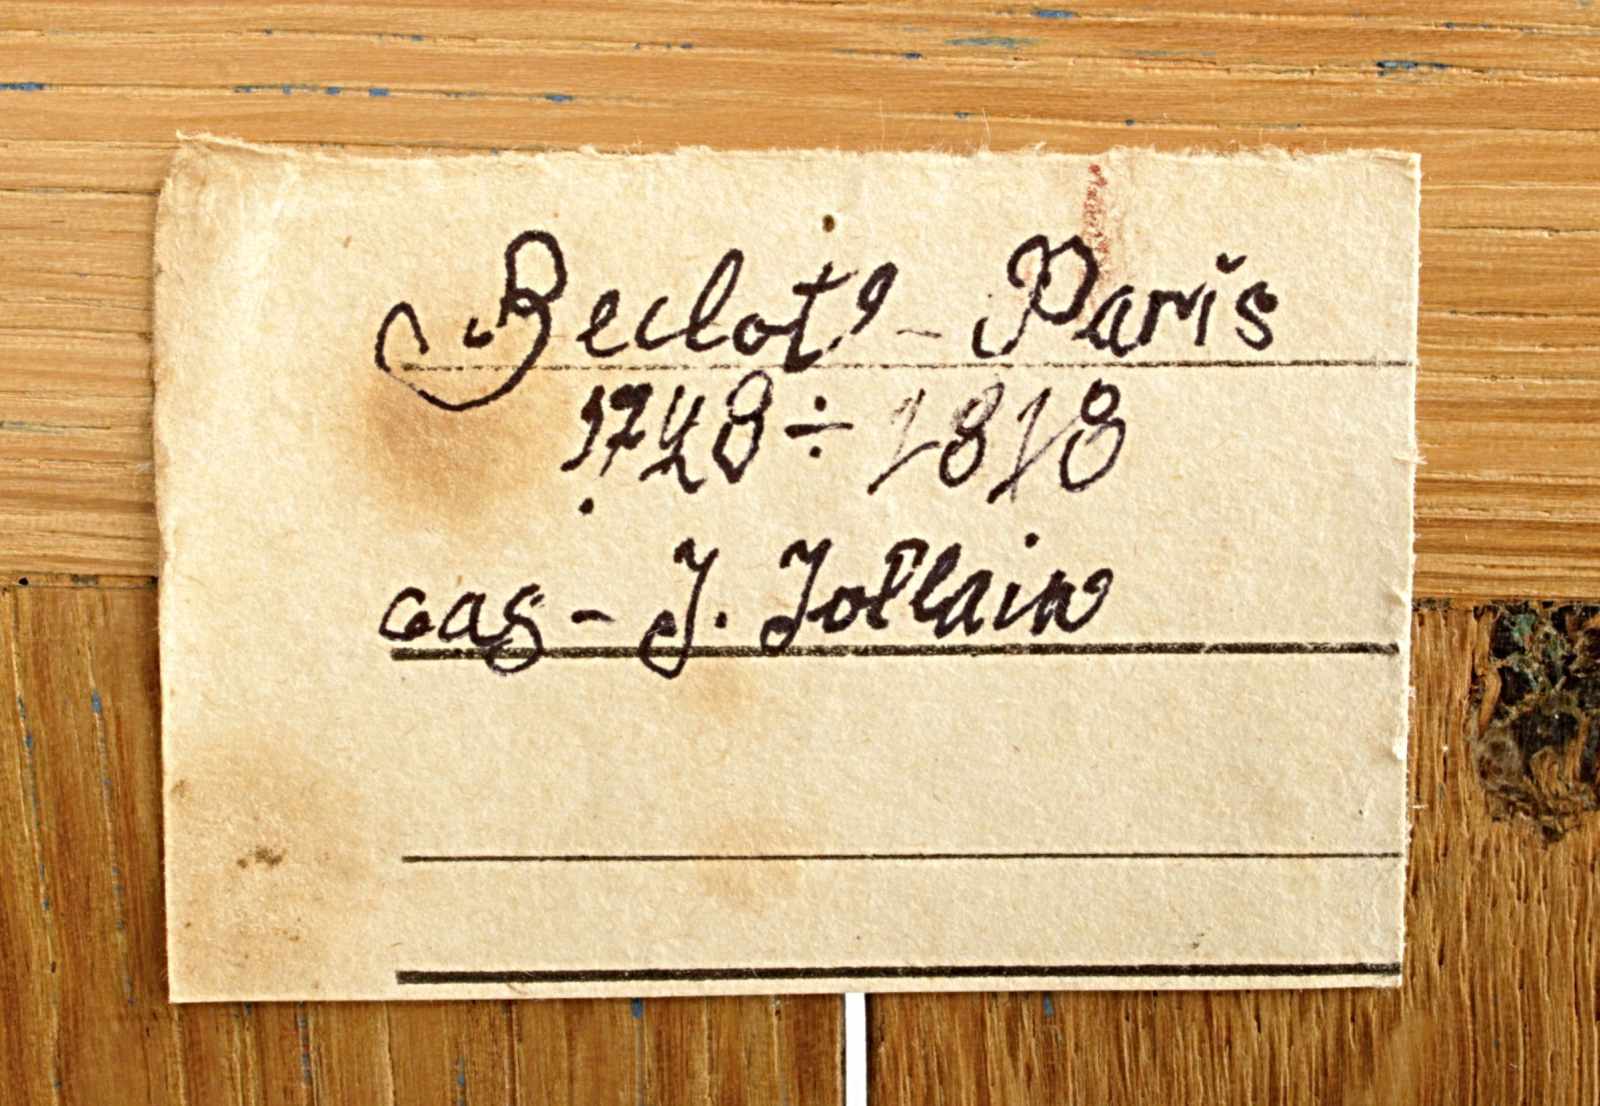 Beclot' - Paris
1748 ÷ 1818
cas - J. Jollain